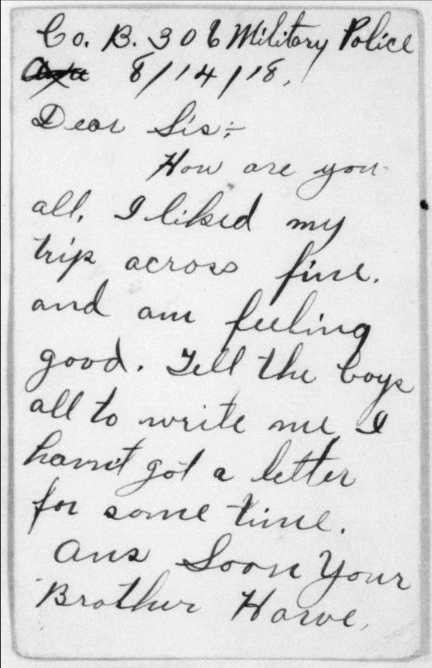 Co. B. 306 Military Police
8/14/18,
Dear Sis:-
How are you
all. I liked my
trip across fine.
and am feeling
good. Tell the boys
all to write me I
havn't got a letter
for some time.
Ans Soon Your
Brother Harve,